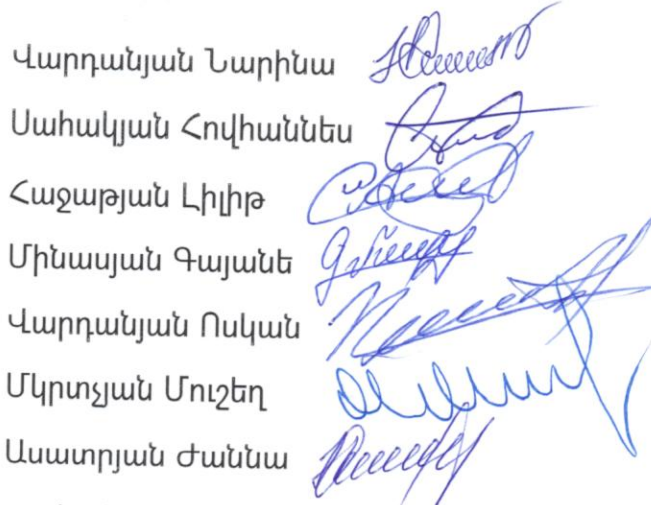 Վարդանյան Նարինա
Սահակյան Հովհաննես
Հաջաթյան Լիլիթ
Մինասյան Գայանե
Վարդանյան Ոսկան
Մկրտչյան Մուշեղ
Ասատրյան Ժաննա